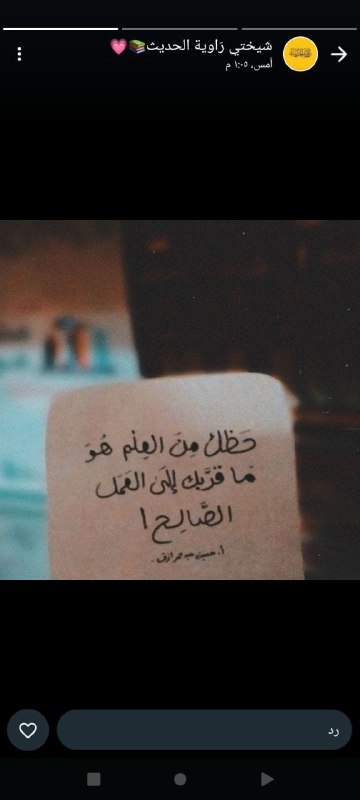 شيختي زاوية الحديث📚💗
أمس، ١:٠٥ م
حَظكَ مِنَ العِلْمِ هُوَ
مَا قرَّبك إلَى العَمَل
الصَّالِح !
رد